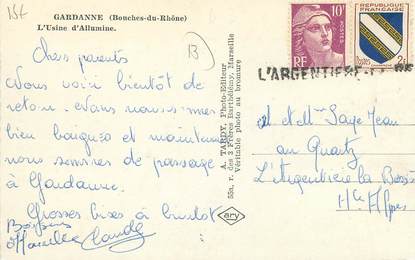 15f
GARDANNE (Bouches-du-Rhône)
L'Usine d'Allumine.
B
Chers parents
Nous voici bientôt de
retour. Nous nous sommes
bien baignés et maintenant
nous sommes de passage
à Gardanne.
Grosses bises à bientôt
Claude
A. TARDY, Photo-Editeur
55a, r. des 3 Frères Barthélémy, Marseille
Véritable photo au bromure
ary
10F
POSTES
RF
REPUBLIQUE
FRANÇAISE
2F
L'ARGENTIERE
et Mme Jean
au Quartz
L'Argentière la Bessée
Htes Alpes